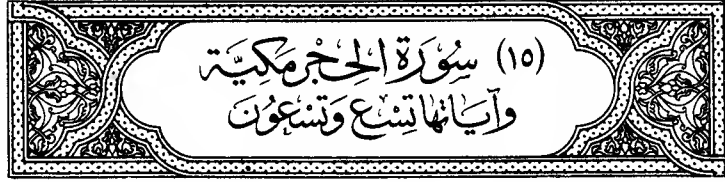 (١٥) سُورَة الحِجْر مَكيَّة
وَآيَاتهَا تِسْع وَتِسْعُونَ